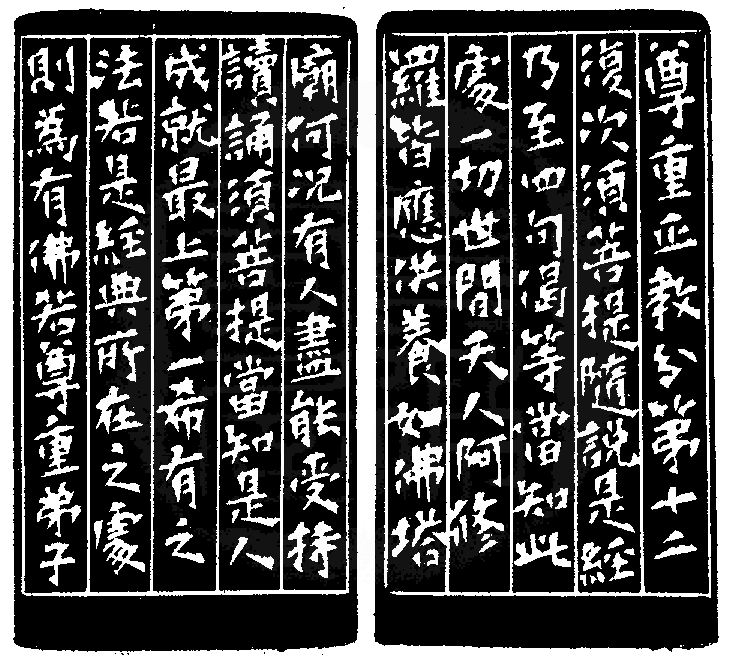 尊重正教分第十二
復次須菩提隨說是經
乃至四句偈等當知此
處一切世間天人阿修
羅皆應供養如佛塔
廟何況有人盡能受持
讀誦須菩提當知是人
成就最上第一希有之
法若是經典所在之處
則為有佛若尊重弟子